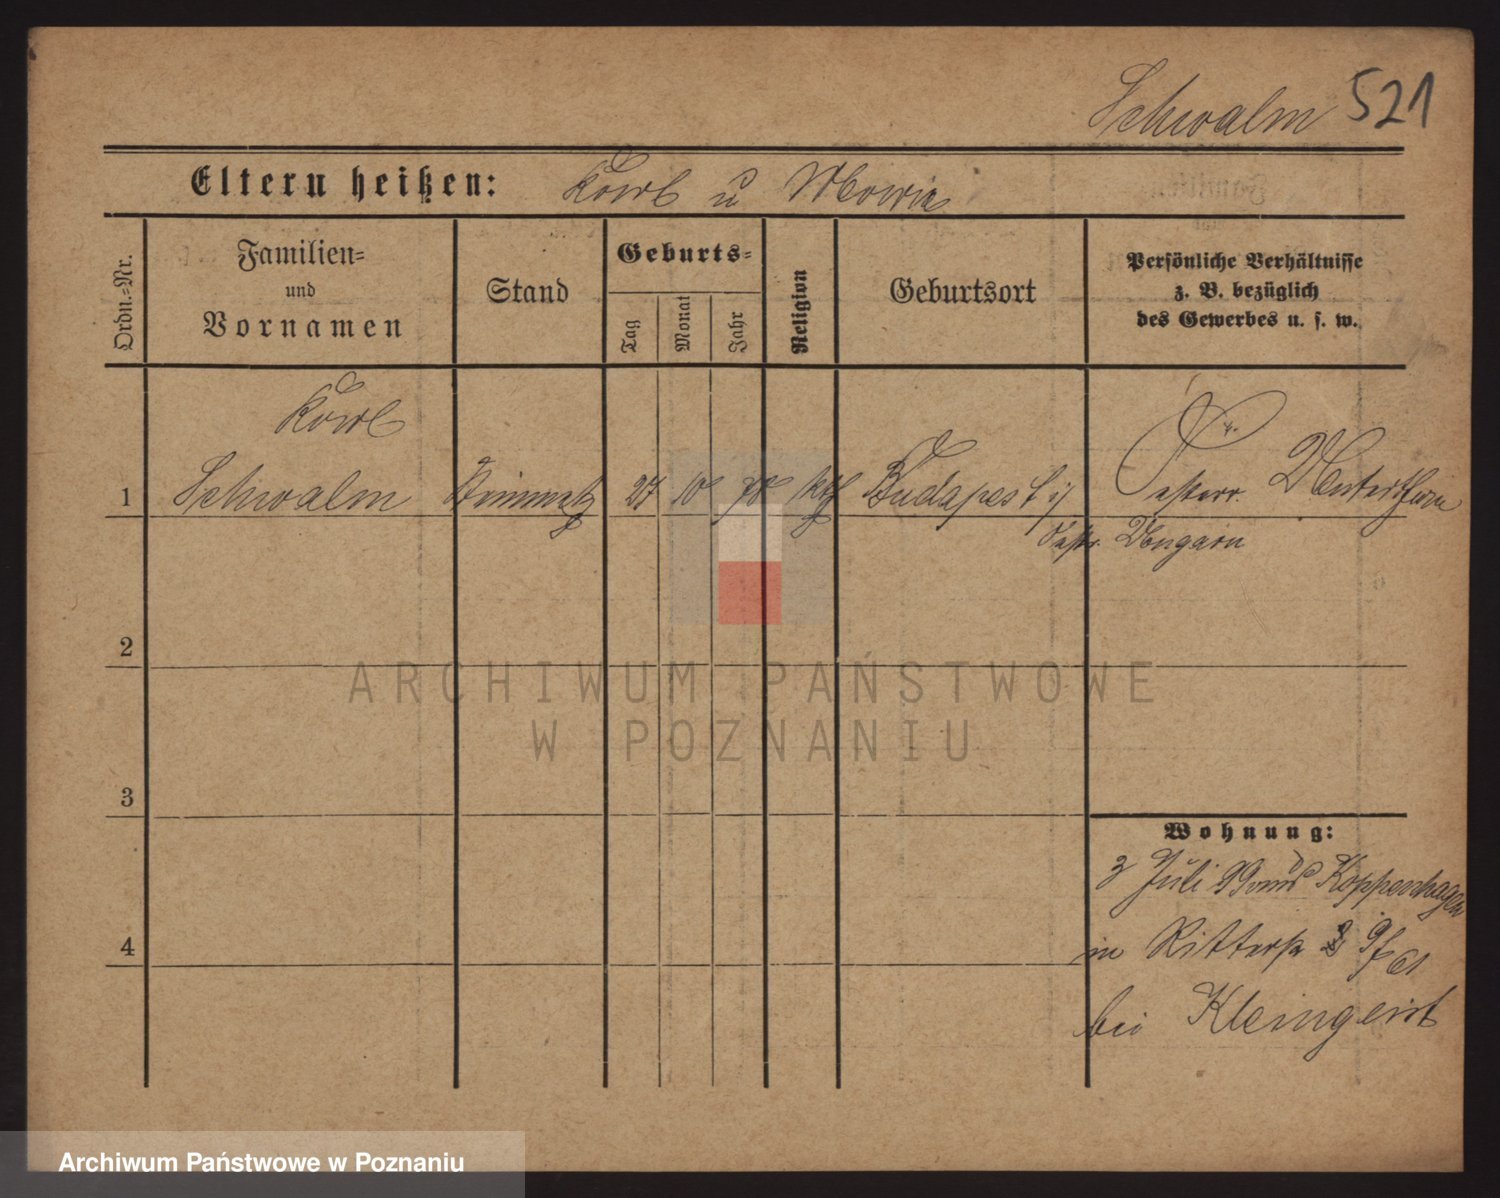 Schwalm 521
Eltern heißen: Karl u Maria
Ordn.-Nr.
Familien-
und
Vornamen
Stand
Geburts-
Tag
Monat
Jahr
Religion
Geburtsort
Persönliche Verhältnisse
z. B. bezüglich
des Gewerbes u. s. w.
Karl
1 Schwalm Steinmetz 27 10 70 kth Budapest i/
Oestr. Ungarn
Oesterr. Unterthan
2
3
4
Wohnung:
3 Juli 99 aus Koppenhagen
in Ritterstr
bei Kleingeist
ARCHIWUM PAŃSTWOWE
W POZNANIU
Archiwum Państwowe w Poznaniu